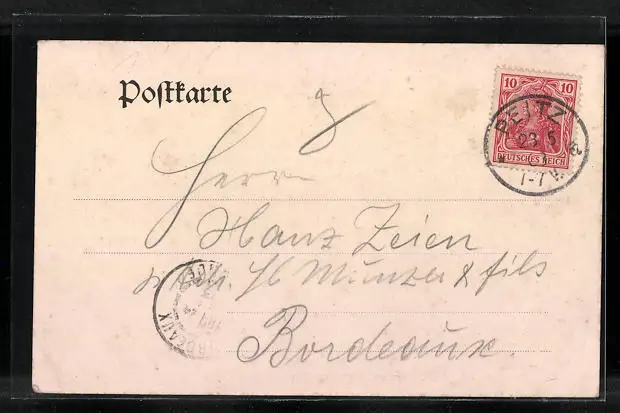 Postkarte
10 10
PEITZ
23 5
1-7 V.
DEUTSCHES REICH
Herrn
Hanz Zeien
Münzer & fils
Bordeaux.
BORDEAUX